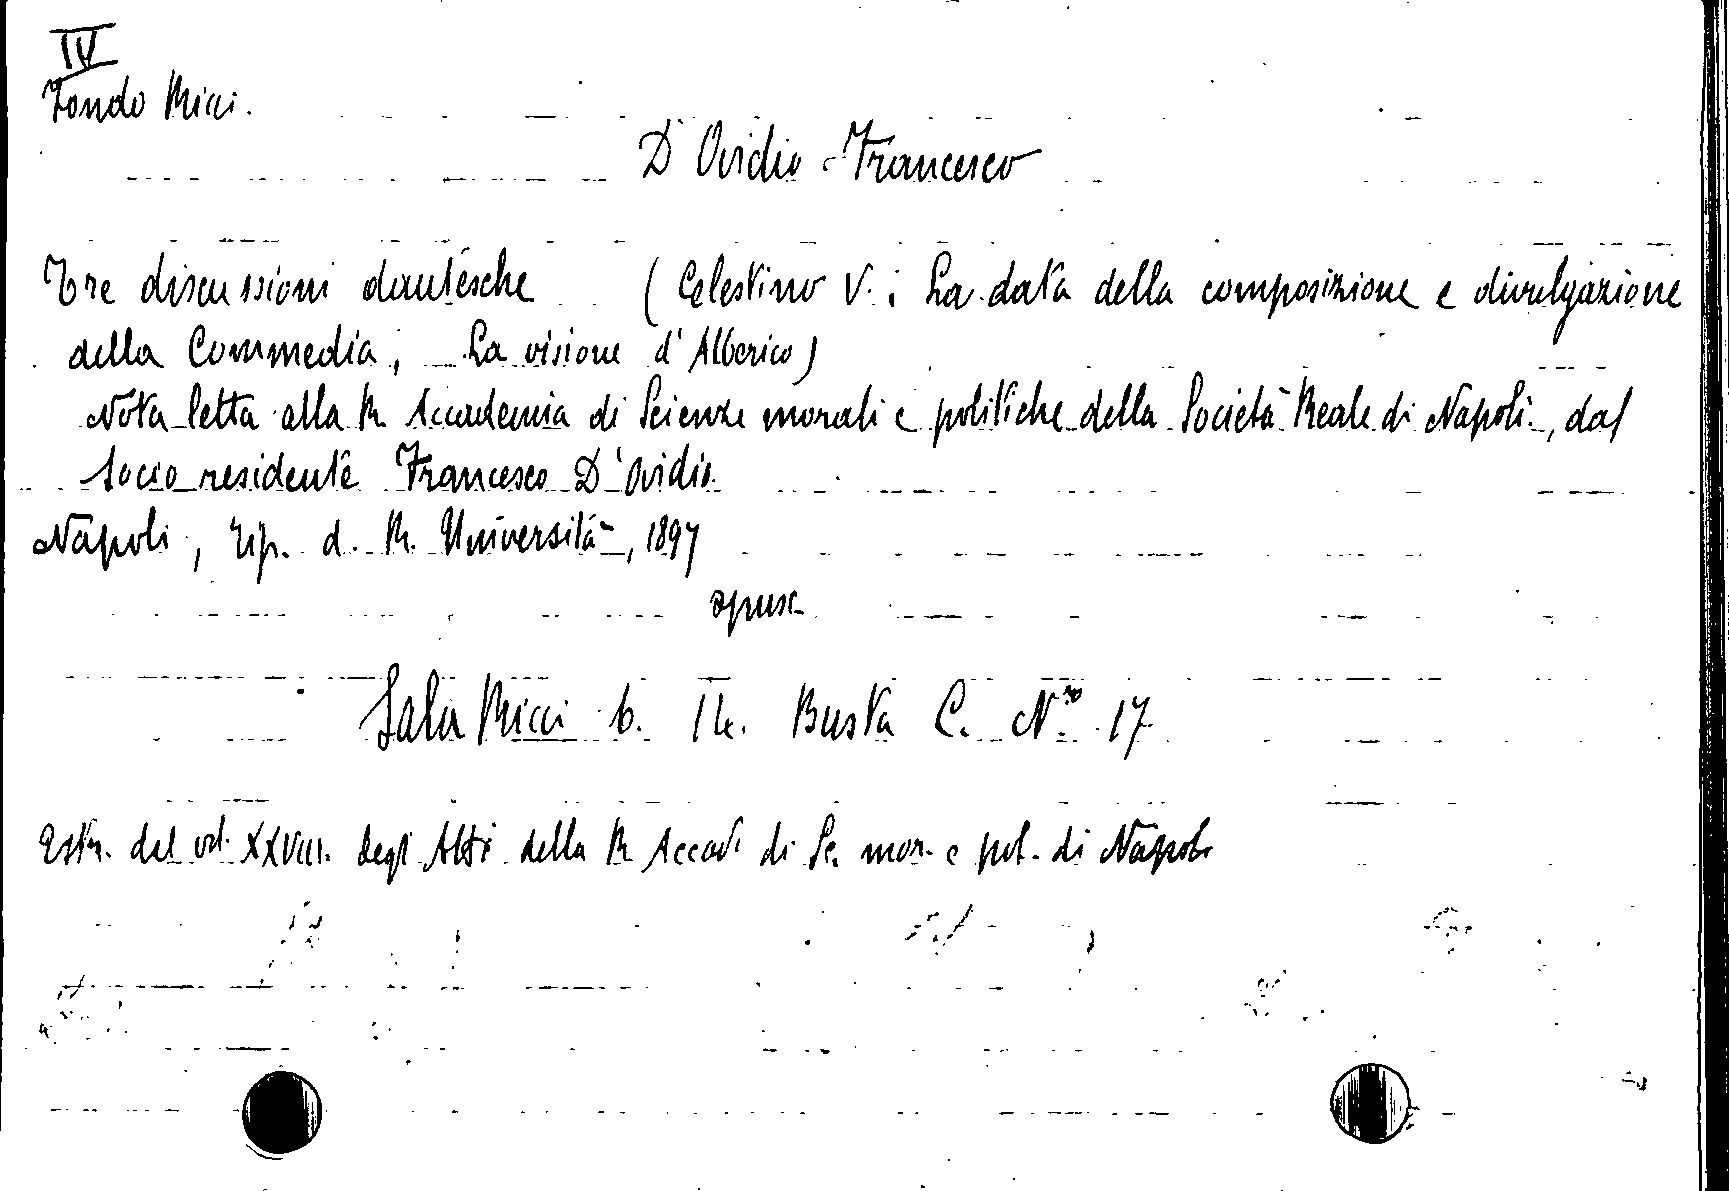 IV
Fondo Ricci.
D'Ovidio Francesco
Tre discussioni dantesche (Celestino V.; La data della composizione e divulgazione
della Commedia; La visione d'Alberico)
Nota letta alla R. Accademia di Scienze morali e politiche della Società Reale di Napoli, dal
socio residente Francesco D'Ovidio.
Napoli, tip. d. R. Università, 1897
opusc
Sala Ricci 6. Busta C. N.ro 17
Estr. del vol. XXVIII. degl Atti della R Accad. di Sc. mor. e pol. di Napoli